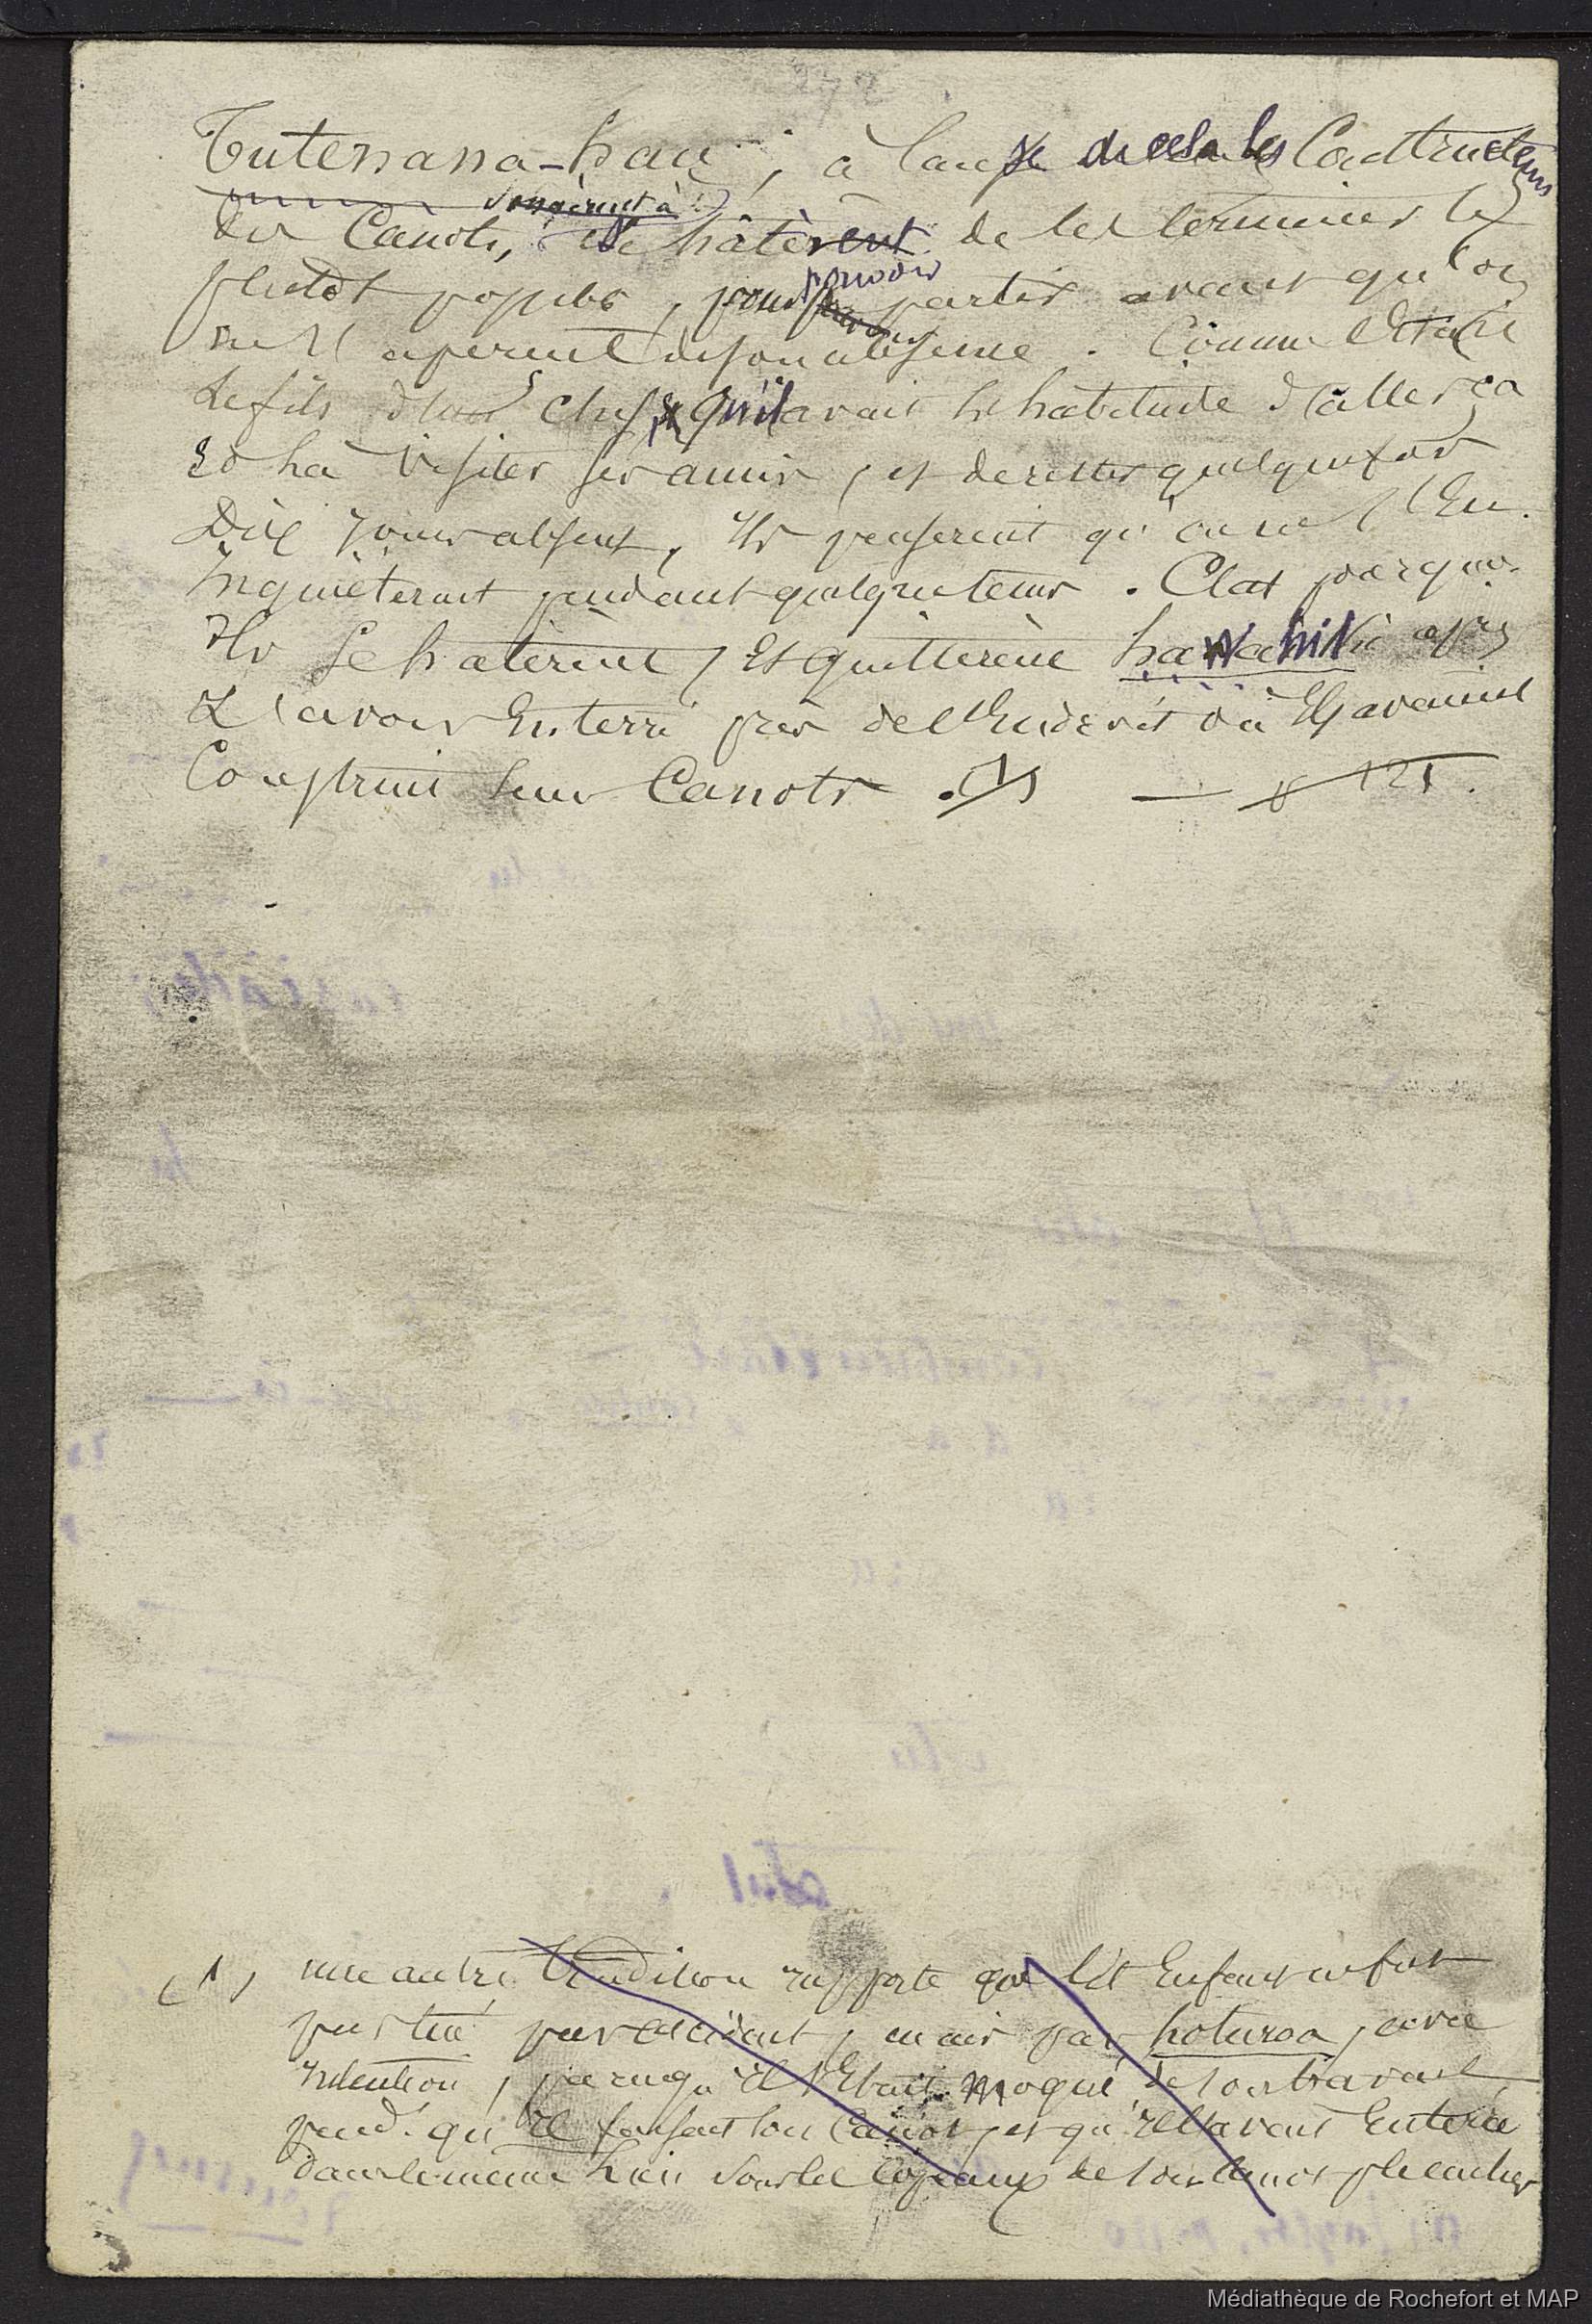 Tutenana-hau, à cause de cela les Constructeurs
songèrent à
des Canots, se hâtèrent de les terminer le
pouvoir
plutôt possible, pour partir avant qu'on
ne s'aperçut de son absence. Comme c'était
le fils d'un chef, qu'il avait l'habitude d'aller ça
et là visiter ses amis, et de rester quelquefois
Dix jours absent, Ils pensèrent qu'on ne s'en
Inquièterait pendant quelque tems. C'est pourquoi
Ils se hâtèrent, et quittèrent après
L'avoir Enterré près de l'Endroit où Ils avaient
Construit leurs Canots. (1) — 121.
(1) une autre tradition rapporte que cet Enfant ne fut
pas tué par accident, mais par hoturoa, avec
Intention, parcequ'il s'était moqué de son travail
pend. qu'il faisait son Canot, et qu'il l'avait Enterré
dans le même lieu sous les copeaux de son canot p. le cacher
Médiathèque de Rochefort et MAP